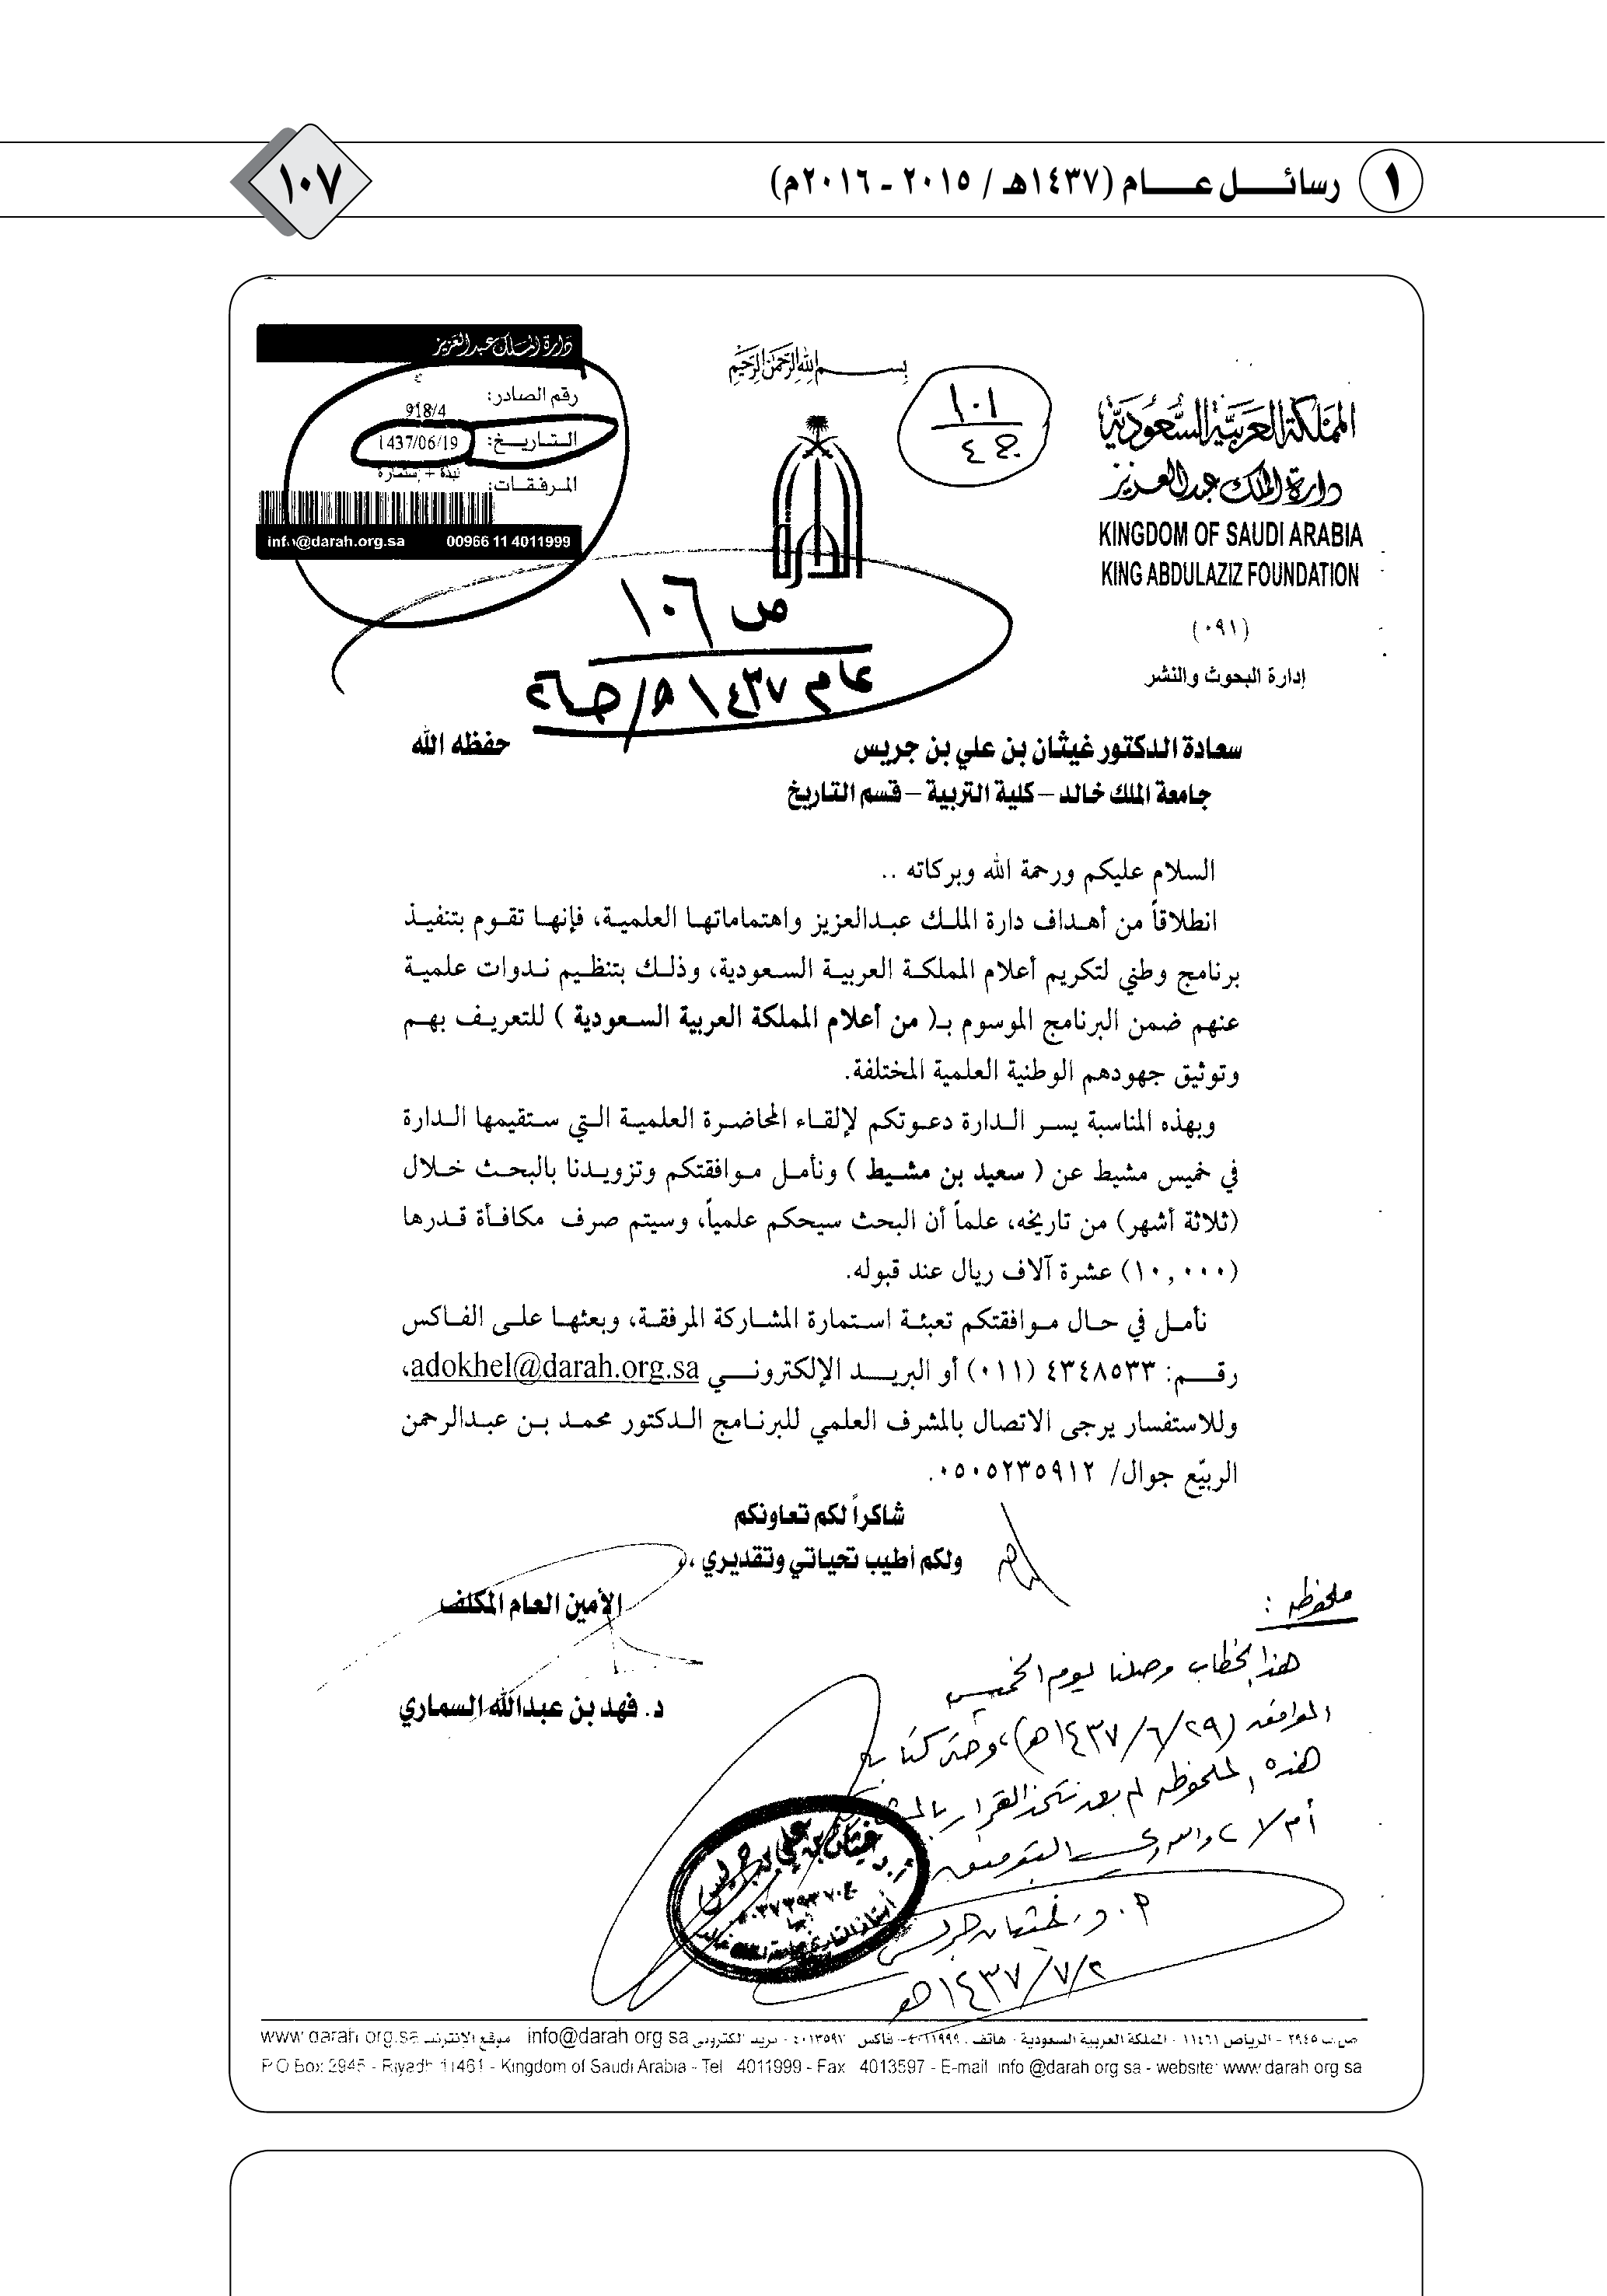 ١ رسائل عام (١٤٣٧هـ / ٢٠١٥ - ٢٠١٦م) ١٠٧
المملكة العربية السعودية
دارة الملك عبدالعزيز
KINGDOM OF SAUDI ARABIA
KING ABDULAZIZ FOUNDATION
(٠٩١)
إدارة البحوث والنشر
بسم الله الرحمن الرحيم
١٠١
ج ٤
دارة الملك عبدالعزيز
رقم الصادر: 918/4
التاريخ: 1437/06/19
المرفقات: نبذة + إستمارة
info@darah.org.sa 00966 11 4011999
ص ١٠٦
عام ١٤٣٧هـ/
سعادة الدكتور غيثان بن علي بن جريس حفظه الله
جامعة الملك خالد – كلية التربية – قسم التاريخ
السلام عليكم ورحمة الله وبركاته ..
انطلاقاً من أهداف دارة الملك عبدالعزيز واهتماماتها العلمية، فإنها تقوم بتنفيذ
برنامج وطني لتكريم أعلام المملكة العربية السعودية، وذلك بتنظيم ندوات علمية
عنهم ضمن البرنامج الموسوم بـ( من أعلام المملكة العربية السعودية ) للتعريف بهم
وتوثيق جهودهم الوطنية العلمية المختلفة.
وبهذه المناسبة يسر الدارة دعوتكم لإلقاء المحاضرة العلمية التي ستقيمها الدارة
في خميس مشيط عن ( سعيد بن مشيط ) ونأمل موافقتكم وتزويدنا بالبحث خلال
(ثلاثة أشهر) من تاريخه، علماً أن البحث سيحكم علمياً، وسيتم صرف مكافأة قدرها
(١٠,٠٠٠) عشرة آلاف ريال عند قبوله.
نأمل في حال موافقتكم تعبئة استمارة المشاركة المرفقة، وبعثها على الفاكس
رقم: ٤٣٤٨٥٣٣ (٠١١) أو البريد الإلكتروني adokhel@darah.org.sa،
وللاستفسار يرجى الاتصال بالمشرف العلمي للبرنامج الدكتور محمد بن عبدالرحمن
الربيّع جوال/ ٠٥٠٥٢٣٥٩١٢.
شاكراً لكم تعاونكم
ولكم أطيب تحياتي وتقديري ،،
الأمين العام المكلف
د. فهد بن عبدالله السماري
ملحوظة :
هذا الخطاب وصلنا يوم الخميس
الموافق (١٤٣٧/٦/٢٩هـ)، وحتى كتابة
هذه الملحوظة لم بعد نتخذ القرار
أم لا، والله ولي التوفيق
أ.د. غيثان جريس
١٤٣٧/٧/٢هـ
أ.د. غيثان بن علي بن جريس
أستاذ التاريخ بجامعة الملك خالد
أبها
ص.ب ٢٩٤٥ - الرياض ١١٤٦١ - المملكة العربية السعودية - هاتف ٤٠١١٩٩٩ - فاكس ٤٠١٣٥٩٧ - بريد الكتروني info@darah org sa موقع الإنترنت www darah org.sa
P O Box 2945 - Riyadh 11461 - Kingdom of Saudi Arabia - Tel 4011999 - Fax 4013597 - E-mail info @darah org sa - website: www darah org sa